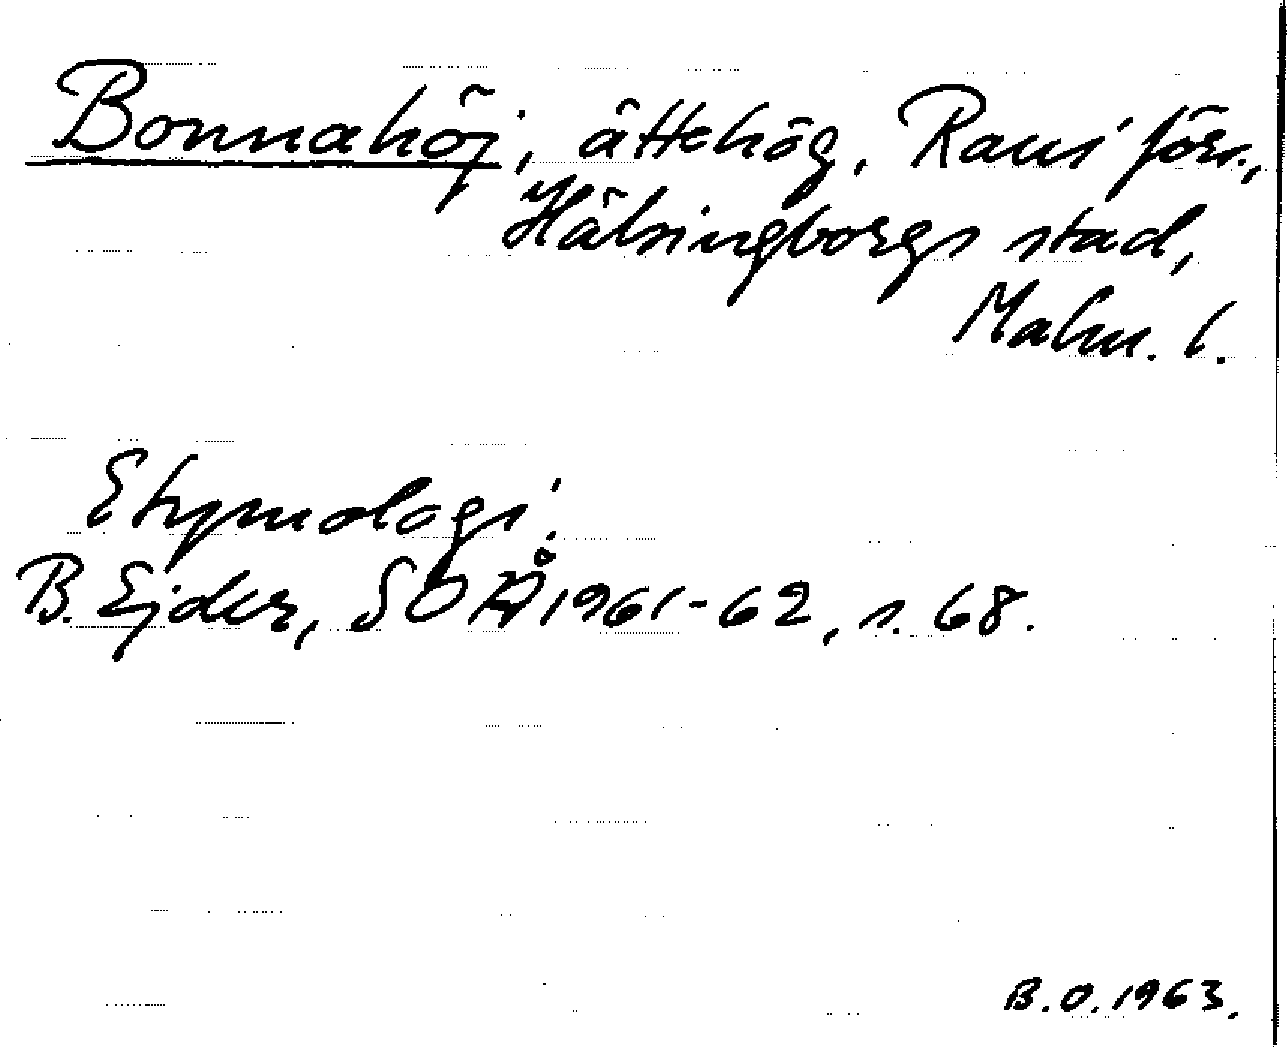 Bonnahöj, ättehög, Raus förs.,
Hälsingborgs stad,
Malm. l.
Etymologi:
B. Ejder, SOÅ 1961-62, s. 68.
B.O. 1963.